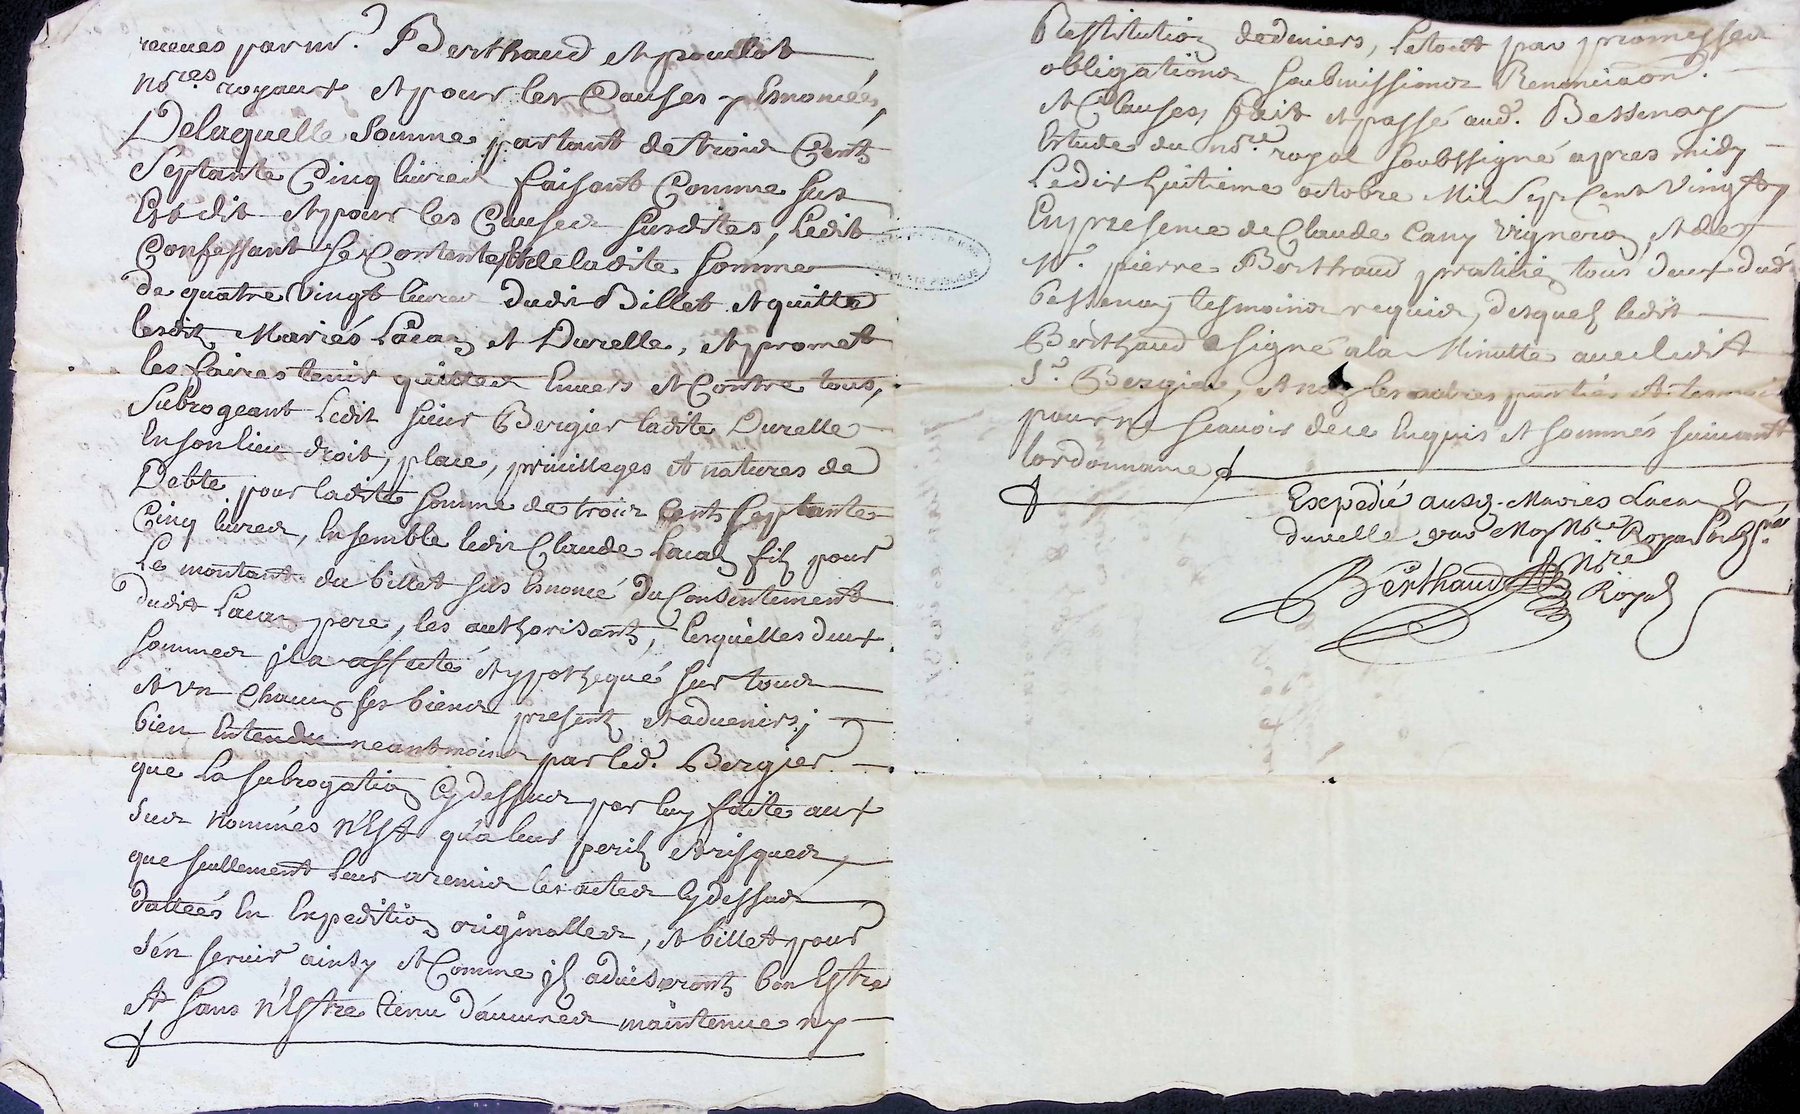 receues par mr. Berthaud et pouillot
nores royaux et pour les Causes y Enoncées,
De laquelle Somme partant de trois Cents
Septante Cinq livres faisant Comme sus
Est dit et pour les Causes susdites, ledit
Confessant se Contente de ladite somme
de quatre Vingt livres dudit Billet et quitte
lesdits Mariés Lacan et Durelle, et promet
les faires tenir quittes Envers et Contre tous,
Subrogeant Ledit sieur Bergier ladite Durelle
En son lieu droit, place, privilleges et natures de
Debte pour ladite somme de trois Cents septante
Cinq livres, Ensemble ledit Claude Lacan fils pour
Le montant du billet sus Enoncé Du Consentement
dudit Lacan pere, les authorisants, lesquelles deux
sommes jl a affecté et ypothequé sur tous
et un Chacun ses biens presents et advenirs;
bien Entendu neantmoins par led. Bergier
que La subrogation Cy dessus par luy faite aux
sus nommés n'Est qu'a leur perils et risques
que seullement leur a remis les actes Cy dessus
dattées En Expedition originalles, et billet pour
s'en servir ainsy et Comme jls adviseronts bon Estre
et sans n'Estre tenu d'aucunes maintenue ny
Restitution de deniers, le tout par promesses
obligations soubmissions Renonciaon.
et Clauses, fait et passé aud. Bessenay
Estude du nore. royal soubssigné apres midy
Le dix huitieme octobre Mil Sept Cent Vingt
En presence de Claude Cany Vigneron, et de
Mr. pierre Berthaud praticien tous deux dud
Bessenay tesmoins requis, desquels ledit
Berthaud a signé a la Minutte avec ledit
Sr. Bergier, et non les autres parties et tesmoin
pour ne scavoir de ce Enquis et sommés suivant
lordonnance
Expedié ausd. Mariés Lacan et
durelle par Moy Nore Royal soubsné.
Berthaud Nore
Royal